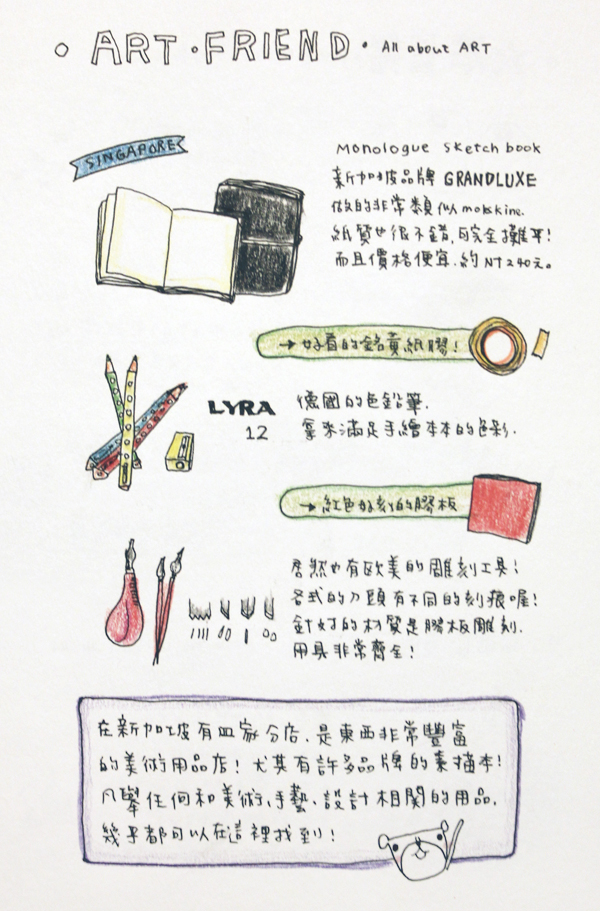 ART · FRIEND · All about ART
SINGAPORE
Monologue Sketch book
新加坡品牌 GRANDLUXE
做的非常類似 moleskine.
紙質也很不錯, 可完全攤平!
而且價格便宜. 約 NT240元。
→ 好看的鉛黃紙膠!
LYRA
12
德國的色鉛筆.
拿來滿足手繪本本的色彩.
→ 紅色好刻的膠板
居然也有歐美的雕刻工具!
各式的刀頭有不同的刻痕喔!
針對的材質是膠板雕刻.
用具非常齊全!
在新加坡有四家分店. 是東西非常豐富
的美術用品店! 尤其有許多品牌的素描本!
凡舉任何和美術、手藝、設計相關的用品.
幾乎都可以在這裡找到!